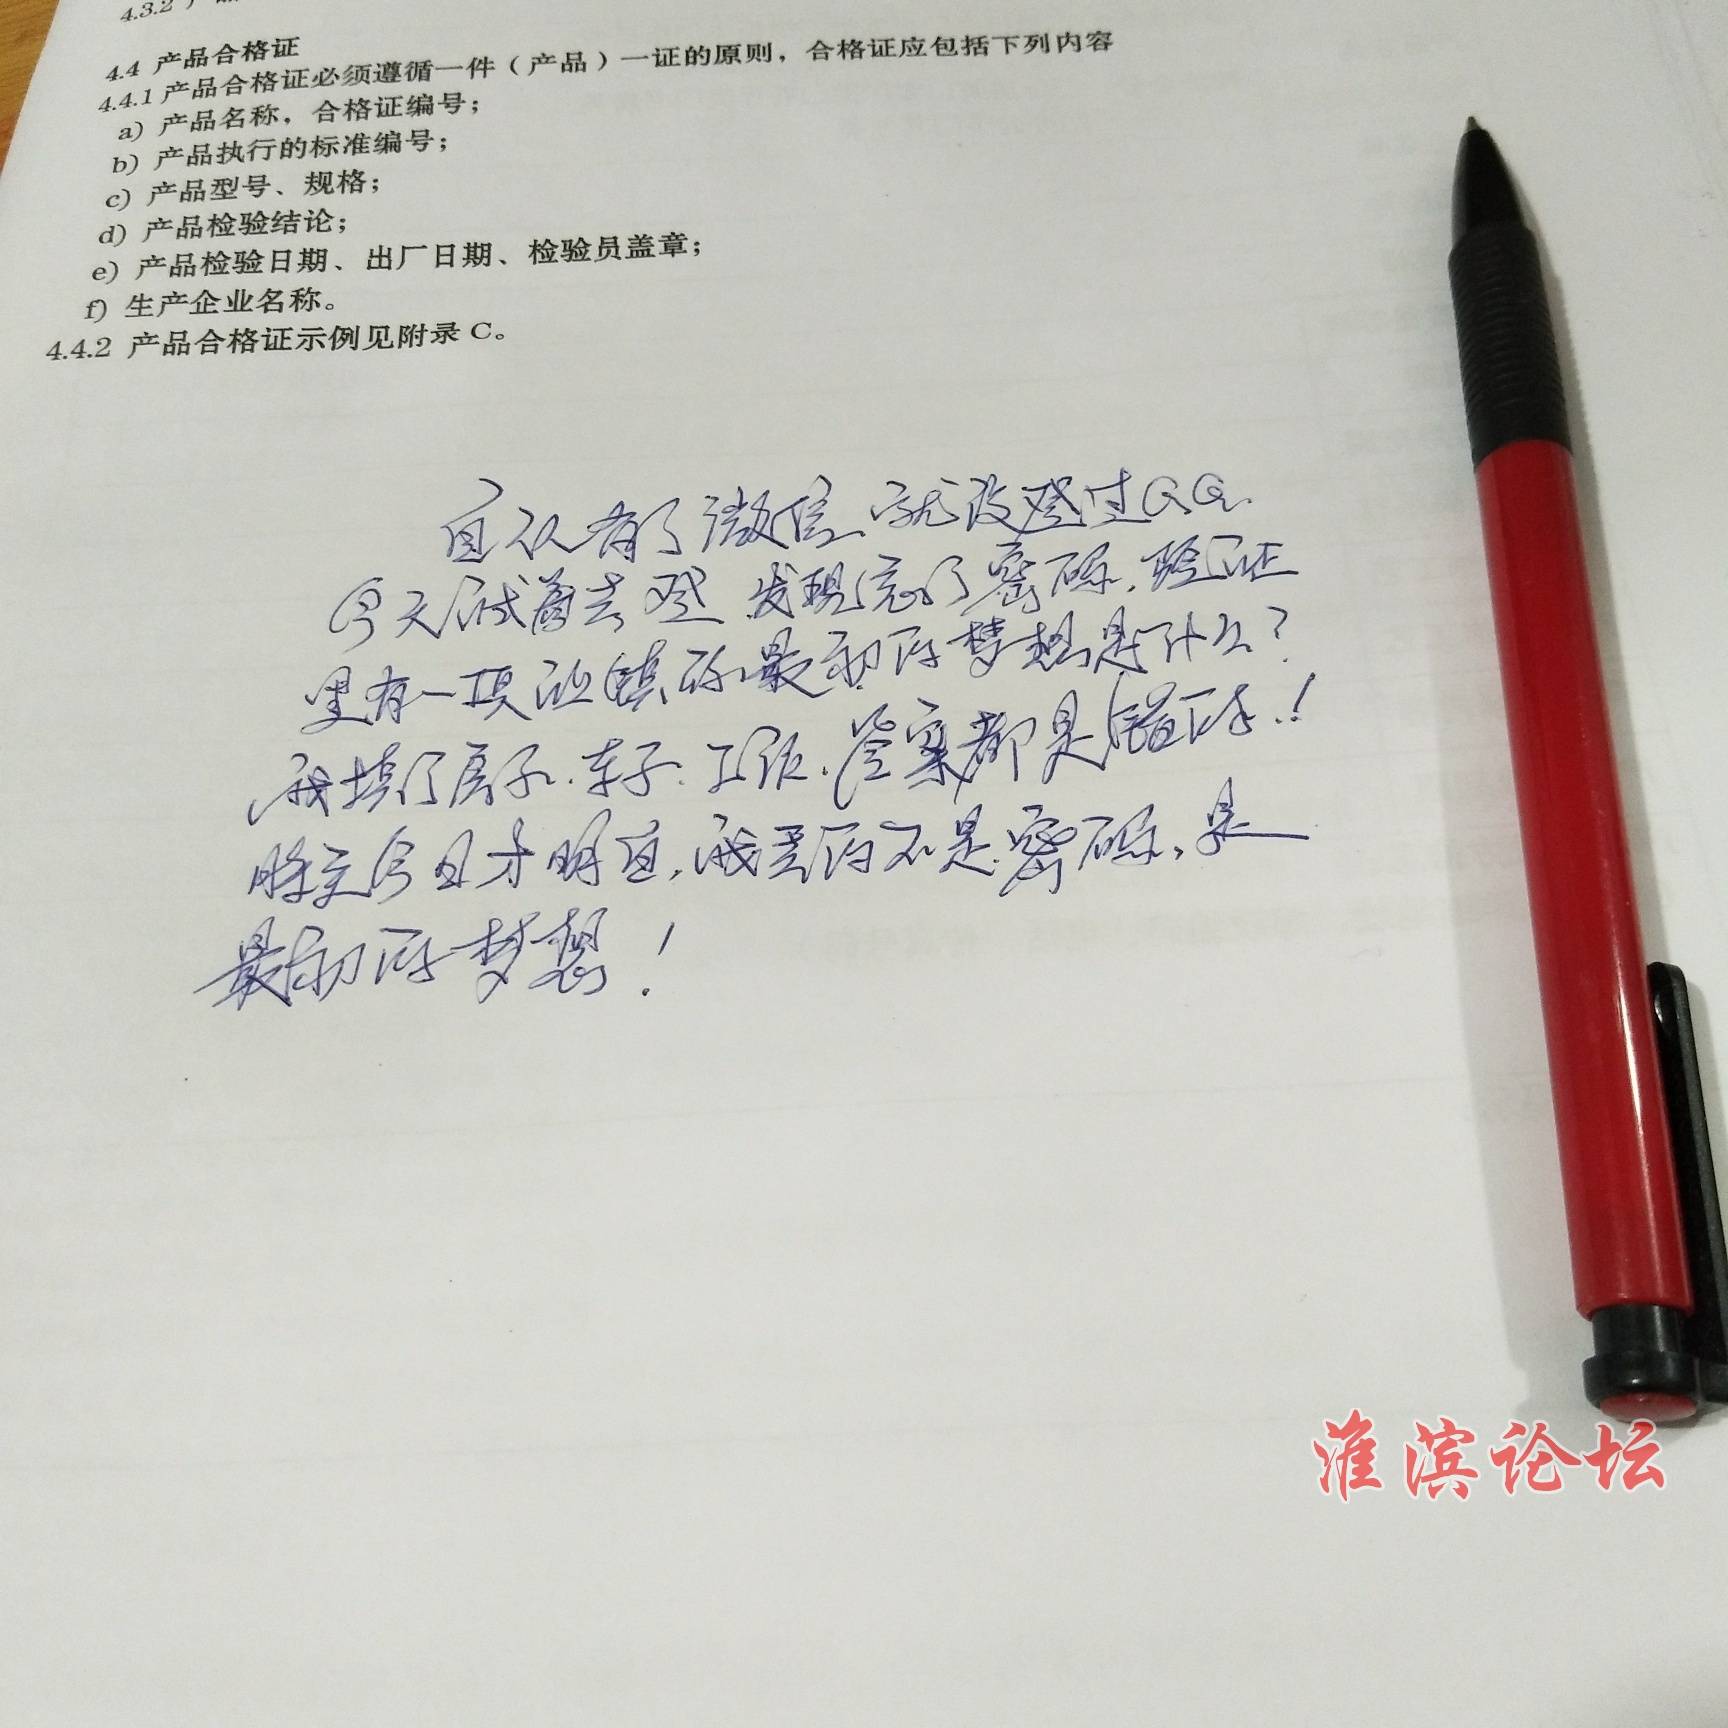 4.3.2 产品
4.4 产品合格证
4.4.1 产品合格证必须遵循一件（产品）一证的原则，合格证应包括下列内容
a) 产品名称，合格证编号；
b) 产品执行的标准编号；
c) 产品型号、规格；
d) 产品检验结论；
e) 产品检验日期、出厂日期、检验员盖章；
f) 生产企业名称。
4.4.2 产品合格证示例见附录 C。
自从有了微信，就没登过QQ.
今天试着去登 发现忘了密码，验证
里有一项 让填你最初的梦想是什么？
我填了房子、车子、工作，答案都是错的！
时至今日才明白，我丢的不是密码，是
最初的梦想！
淮滨论坛